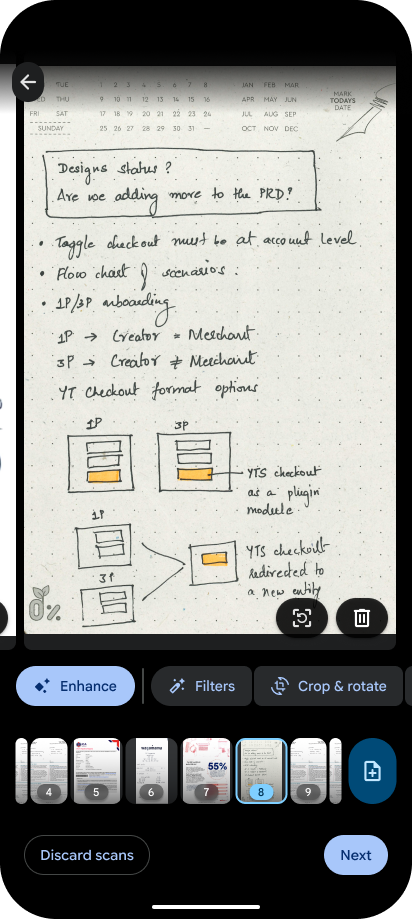 TUE 1 2 3 4 5 6 7 8 JAN FEB MAR
WED THU 9 10 11 12 13 14 15 16 APR MAY JUN
FRI SAT 17 18 19 20 21 22 23 24 JUL AUG SEP
SUNDAY 25 26 27 28 29 30 31 — OCT NOV DEC
MARK
TODAYS
DATE
Designs status?
Are we adding more to the PRD?
• Toggle checkout must be at account level
• Flow chart of scenarios.
• 1P/3P onboarding
1P → Creator = Merchant
3P → Creator ≠ Merchant
YT Checkout format options
1P
3P
YTS checkout
as a plugin
module
1P
3P
YTS checkout
redirected to
a new entity
0%
Enhance
Filters
Crop & rotate
4
5
6
7
55%
8
9
Discard scans
Next